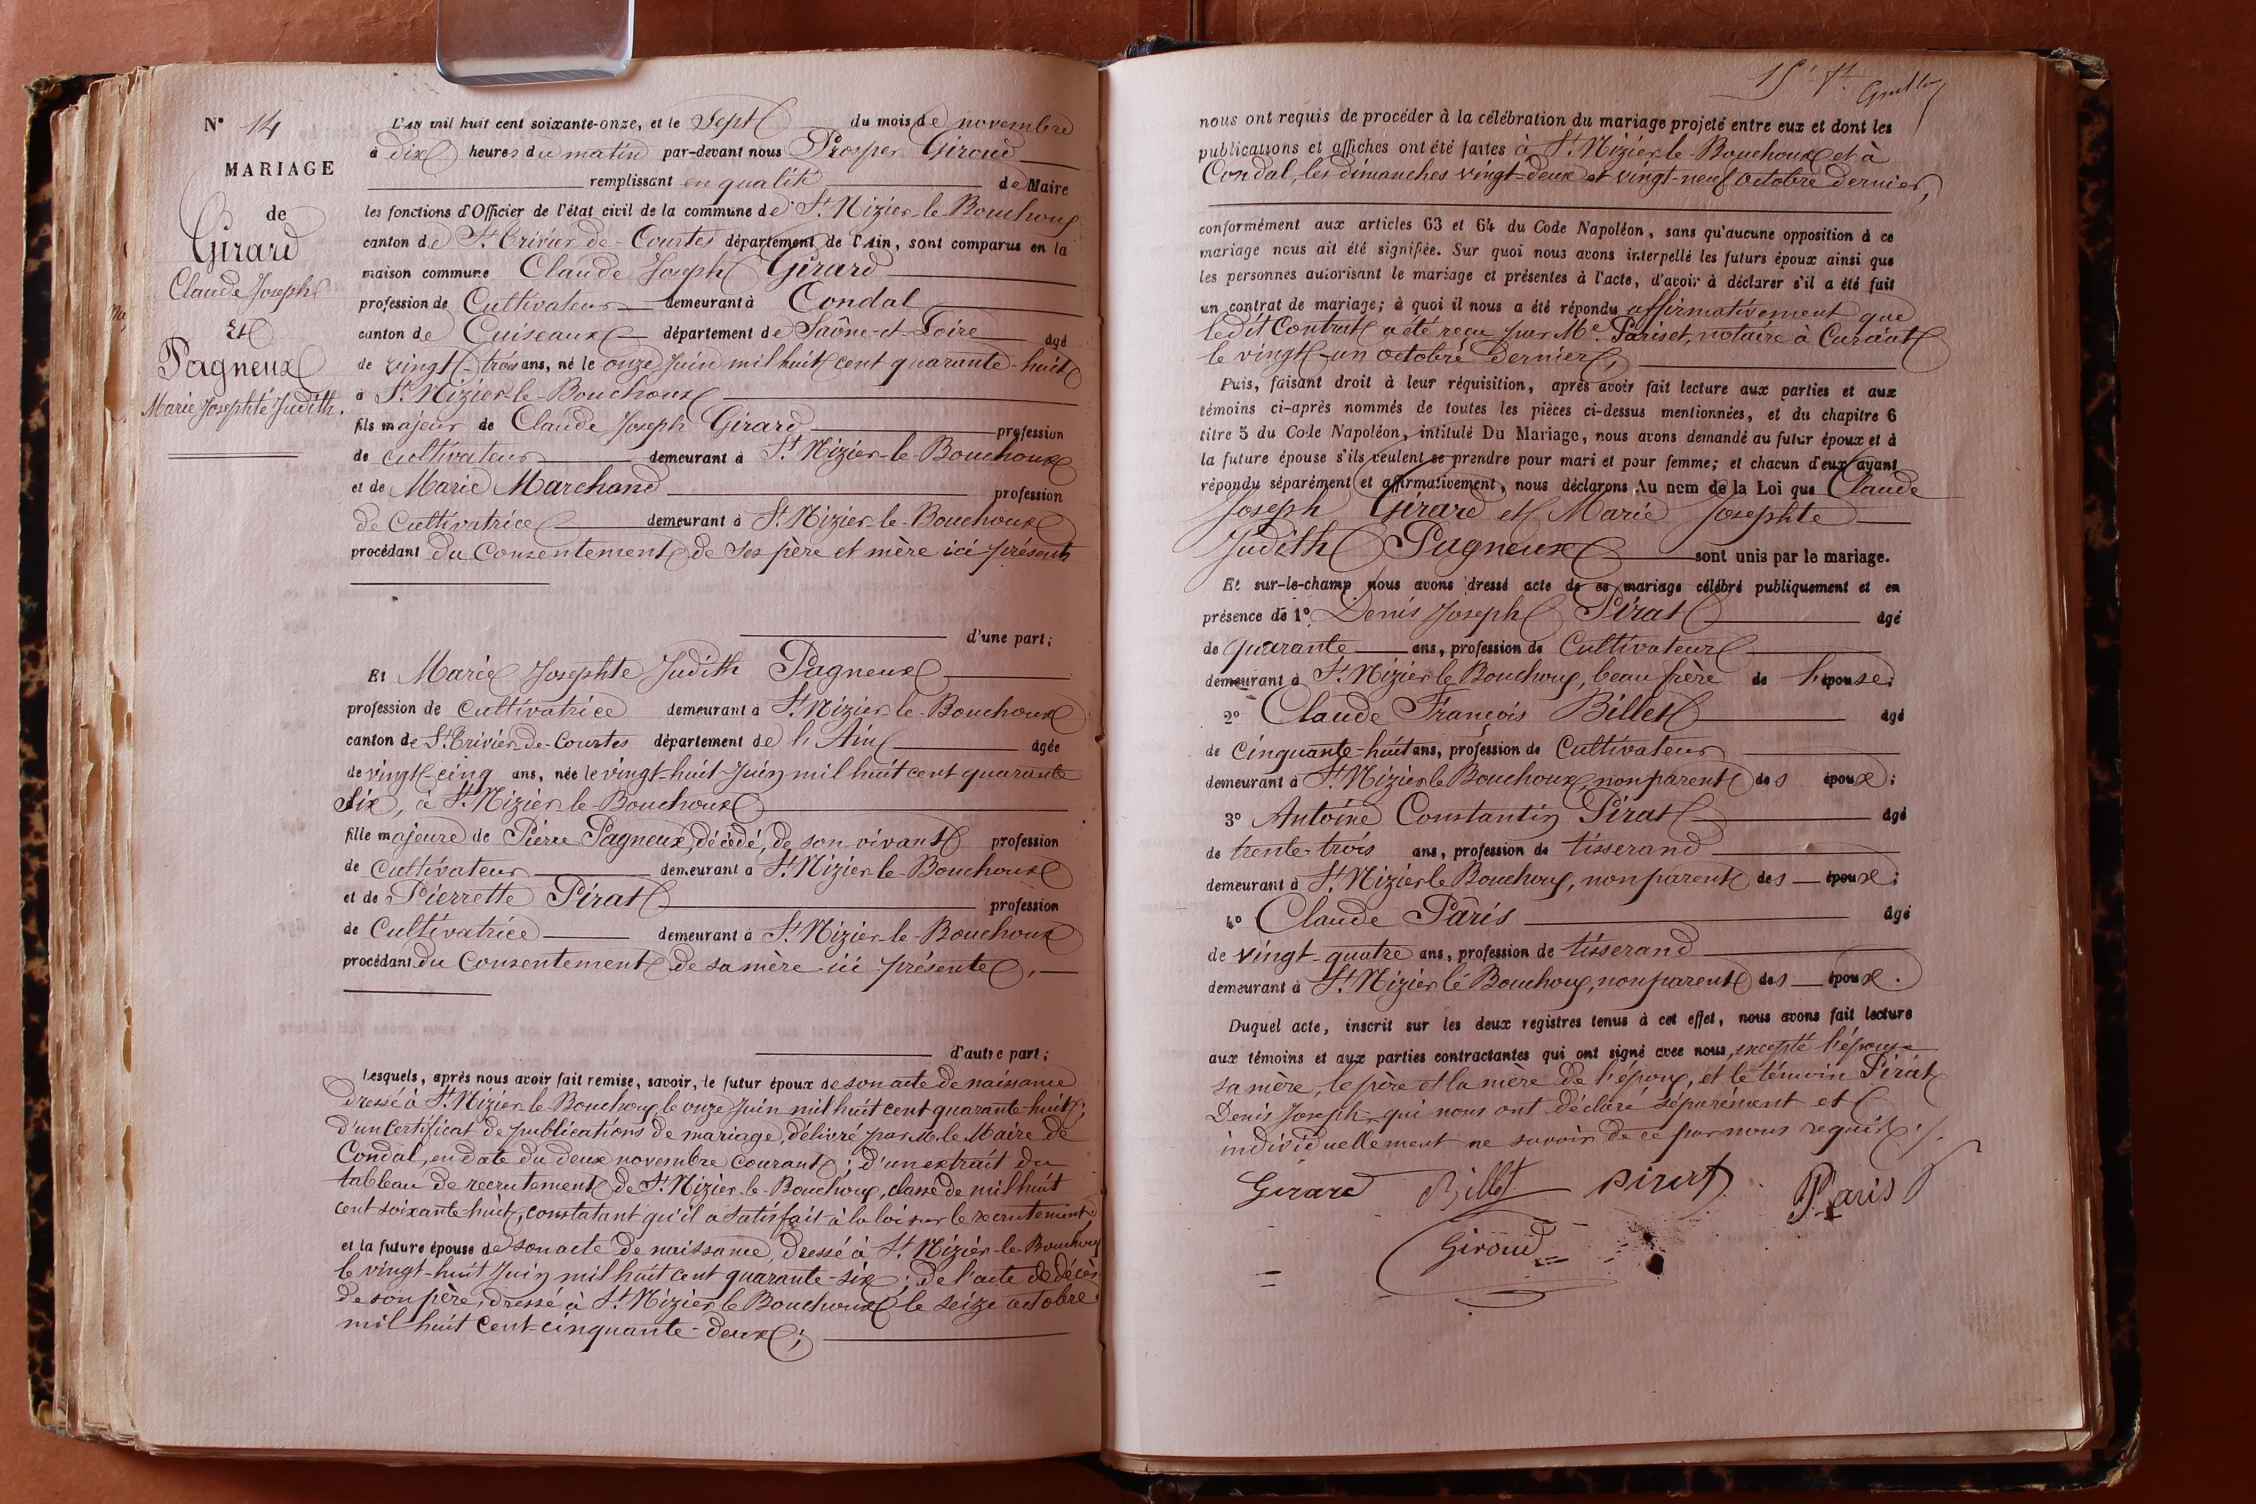 N° 14
MARIAGE
de
Girard
Claude Joseph
Et
Pagneux
Marie Josephte Judith.
L'an mil huit cent soixante-onze, et le Sept du mois de novembre
à dix heures du matin par-devant nous Prosper Giroud
remplissant en qualité de Maire
les fonctions d'Officier de l'état civil de la commune de St Nizier-le-Bouchoux
canton de St Trivier-de-Courtes département de l'Ain, sont comparus en la
maison commune Claude Joseph Girard
profession de Cultivateur demeurant à Condal
canton de Cuiseaux département de Saône-et-Loire âgé
de vingt-trois ans, né le onze Juin mil huit cent quarante-huit
à St Nizier-le-Bouchoux
fils majeur de Claude Joseph Girard profession
de cultivateur demeurant à St Nizier-le-Bouchoux
et de Marie Marchand profession
de Cultivatrice demeurant à St Nizier-le-Bouchoux
procédant du Consentement de ses père et mère ici présents
d'une part;
Et Marie Josephte Judith Pagneux
profession de cultivatrice demeurant à St Nizier-le-Bouchoux
canton de St Trivier-de-Courtes département de l'Ain âgée
de vingt-cinq ans, née le vingt-huit Juin mil huit cent quarante
six, à St Nizier-le-Bouchoux
fille majeure de Pierre Pagneux, décédé, de son vivant profession
de Cultivateur demeurant à St Nizier-le-Bouchoux
et de Pierrette Pirat profession
de Cultivatrice demeurant à St Nizier-le-Bouchoux
procédant du Consentement de sa mère ici présente,
d'autre part;
Lesquels, après nous avoir fait remise, savoir, le futur époux de son acte de naissance
dressé à St Nizier-le-Bouchoux le onze Juin mil huit cent quarante-huit;
d'un certificat de publications de mariage, délivré par Mr le Maire de
Condal, en date du deux novembre courant; d'un extrait du
tableau de recrutement de St Nizier-le-Bouchoux, classe de mil huit
cent soixante-huit, constatant qu'il a satisfait à la loi sur le recrutement
et la future épouse de son acte de naissance, dressé à St Nizier-le-Bouchoux
le vingt-huit Juin mil huit cent quarante-six; de l'acte de décès
de son père, dressé à St Nizier le Bouchoux le seize octobre
mil huit cent-cinquante-deux;
nous ont requis de procéder à la célébration du mariage projeté entre eux et dont les
publications et affiches ont été faites à St Nizier-le-Bouchoux et à
Condal, les dimanches vingt-deux et vingt-neuf octobre dernier,
conformément aux articles 63 et 64 du Code Napoléon, sans qu'aucune opposition à ce
mariage nous ait été signifiée. Sur quoi nous avons interpellé les futurs époux ainsi que
les personnes autorisant le mariage et présentes à l'acte, d'avoir à déclarer s'il a été fait
un contrat de mariage; à quoi il nous a été répondu affirmativement que
ledit Contrat a été reçu par Me Pariset, notaire à Curciat
le vingt-un octobre dernier,
Puis, faisant droit à leur réquisition, après avoir fait lecture aux parties et aux
témoins ci-après nommés de toutes les pièces ci-dessus mentionnées, et du chapitre 6
titre 5 du Code Napoléon, intitulé Du Mariage, nous avons demandé au futur époux et à
la future épouse s'ils veulent se prendre pour mari et pour femme; et chacun d'eux ayant
répondu séparément et affirmativement, nous déclarons Au nom de la Loi que Claude
Joseph Girard et Marie Josephte
Judith Pagneux sont unis par le mariage.
Et sur-le-champ nous avons dressé acte de ce mariage célébré publiquement et en
présence de 1° Denis Joseph Pirat âgé
de quarante ans, profession de Cultivateur
demeurant à St Nizier le Bouchoux, beau frère de l'épouse;
2° Claude François Billet âgé
de Cinquante-huit ans, profession de Cultivateur
demeurant à St Nizier le Bouchoux, non parent des époux;
3° Antoine Constantin Pirat âgé
de trente-trois ans, profession de tisserand
demeurant à St Nizier le Bouchoux, non parent des époux;
4° Claude Pâris âgé
de vingt-quatre ans, profession de tisserand
demeurant à St Nizier le Bouchoux, non parent des époux.
Duquel acte, inscrit sur les deux registres tenus à cet effet, nous avons fait lecture
aux témoins et aux parties contractantes qui ont signé avec nous, excepté l'épouse
sa mère, le père et la mère de l'époux, et le témoin Pirat
Denis Joseph, qui nous ont déclaré séparément et
individuellement ne savoir de ce par nous requis.
Girard Billet Pirat P. Paris
Giroud